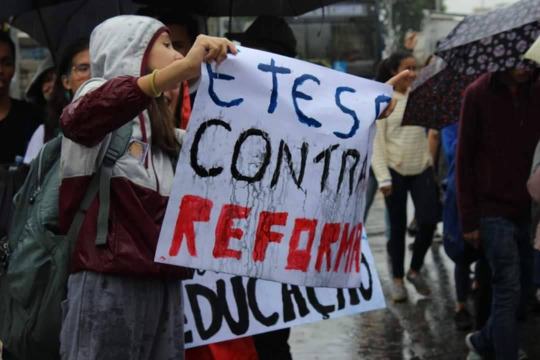 ETESP
CONTRA
REFORMA
EDUCAÇÃO